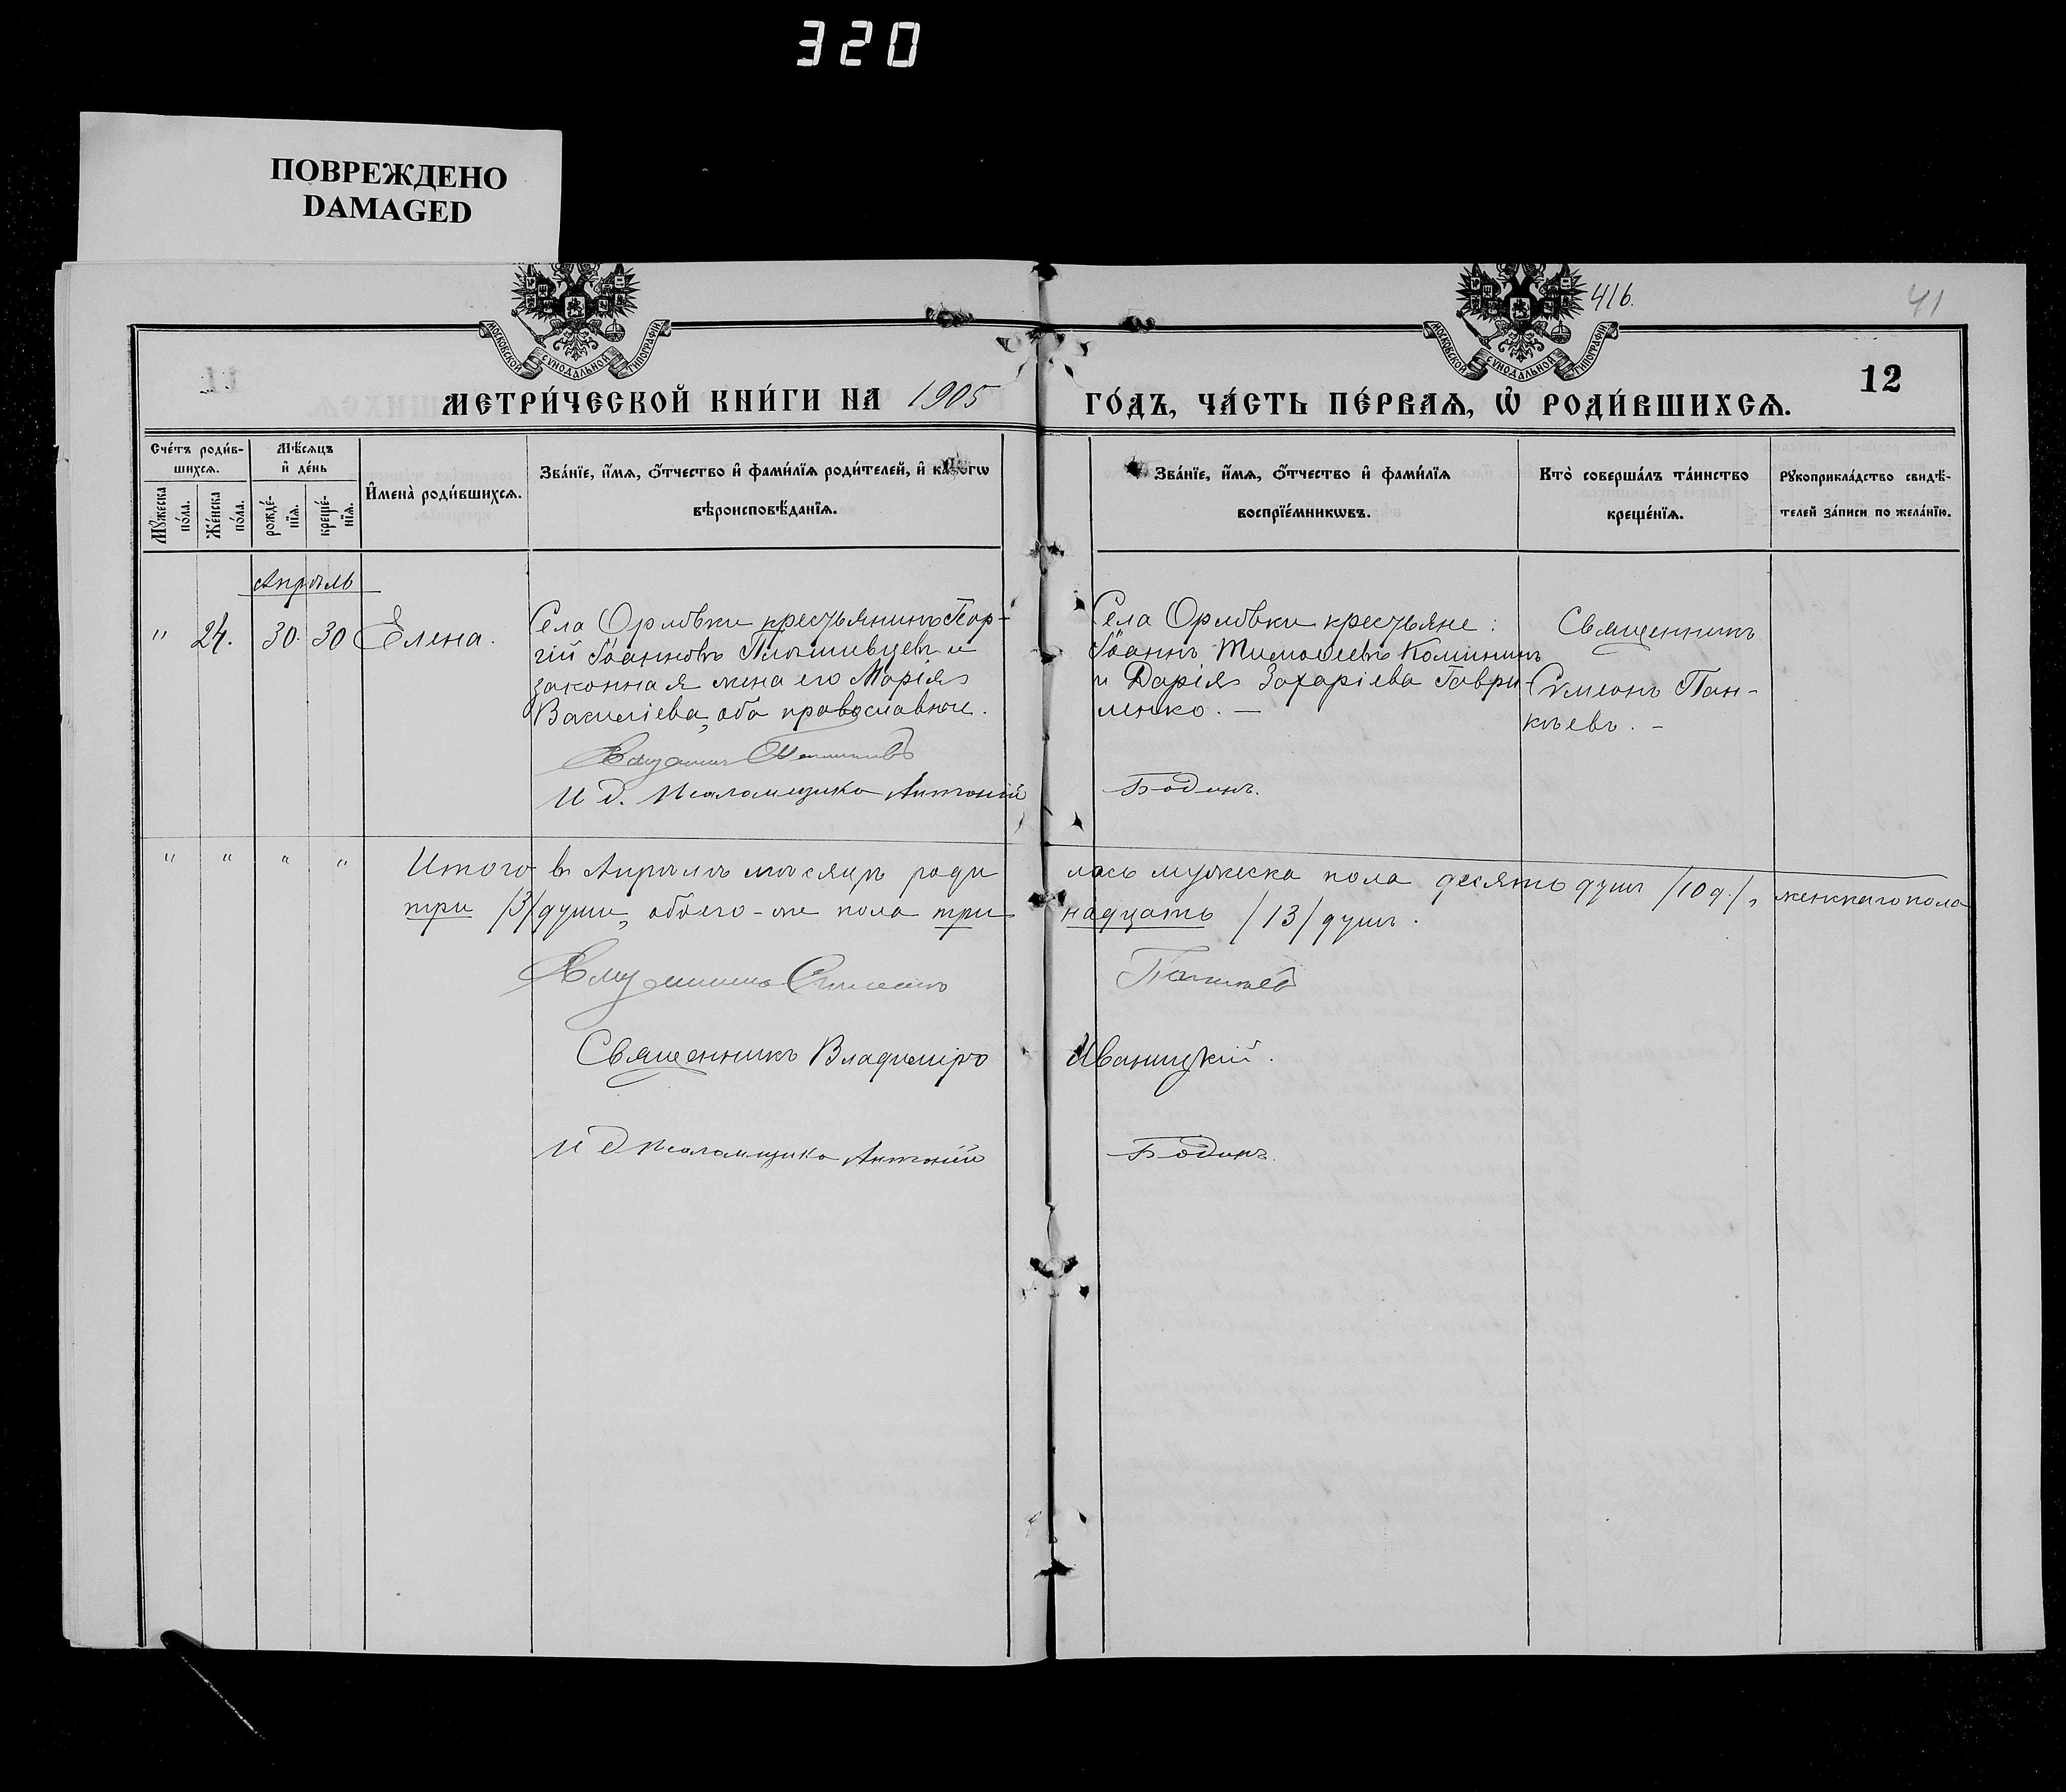 320
ПОВРЕЖДЕНО
DAMAGED
МОСКОВСКОЙ СѴНОДАЛЬНОЙ ТИПОГРАФІИ
МОСКОВСКОЙ СѴНОДАЛЬНОЙ ТИПОГРАФІИ
416.
41
12
МЕТРИ́ЧЕСКОЙ КНИ́ГИ НА 1905 ГО́ДЪ, ЧА́СТЬ ПЕ́РВАѦ, Ѡ РОДИ́ВШИХСѦ.
Сче́тъ роди́в-
шихсѧ.
Мꙋ́жеска
по́ла.
Же́нска
по́ла.
Мѣ́сѧцъ
и҆ де́нь
рожде́-
нїѧ.
креще́-
нїѧ.
И҆мена̀ роди́вшихсѧ.
Зва́нїе, и҆́мѧ, ѻ҆́тчество и҆ фами́лїѧ роди́телей, и҆ како́гѡ
вѣроисповѣ́данїѧ.
Зва́нїе, и҆́мѧ, ѻ҆́тчество и҆ фами́лїѧ
воспрїе́мникѡвъ.
Кто̀ соверша́лъ та́инство
креще́нїѧ.
Рꙋкоприкла́дство свидѣ́-
телей за́писи по жела́нїю.
Апрѣль
" 24. 30. 30 Елена.
Села Орловки крестьянинъ Геор-
гій Іоанновъ Плѣшивцевъ и
законная жена его Марія
Василіева, оба православные.
Села Орловки крестьяне:
Іоаннъ Тимоѳеевъ Комининъ
и Дарія Захаріева Гаври-
ленко. —
Священникъ
Сѵмеонъ Пан-
кѣевъ. —
И д. Псаломщика Антоній Бодинъ.
" " " " Итого въ Апрѣлѣ мѣсяцѣ роди лось мужеска пола десять душъ /10 д./, женскаго пола
три /3/ души, обоего-же пола три надцать /13/ душъ.
Священникъ Владиміръ Иваницкій.
И д Псаломщика Антоній Бодинъ.